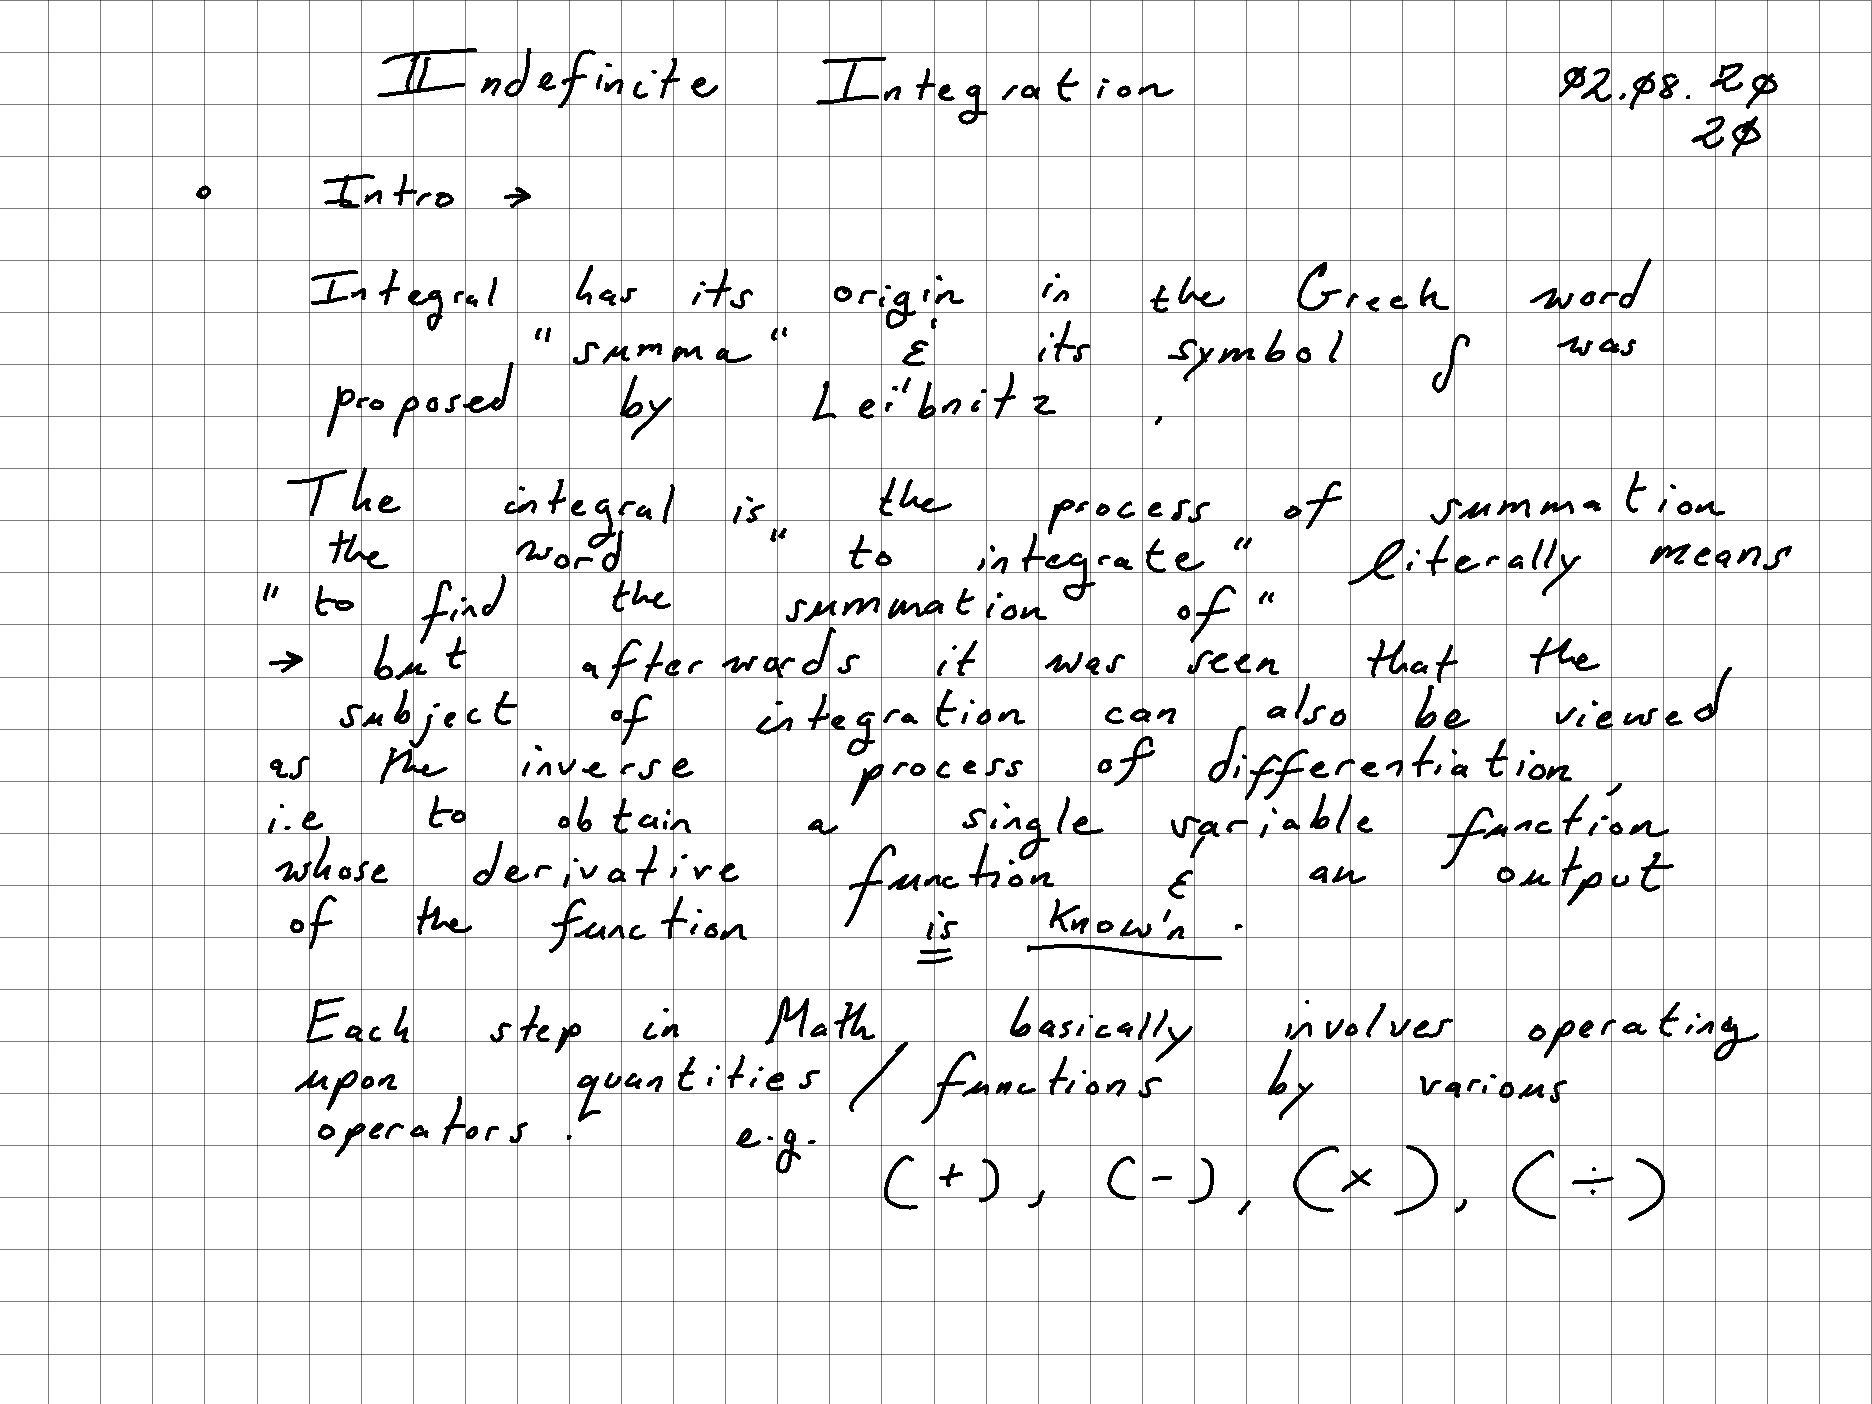 Indefinite Integration 02.08.20
20
Intro →
Integral has its origin in the Greek word
"summa" & its symbol ∫ was
proposed by Leibnitz.
The integral is the process of summation
the word "to integrate" literally means
"to find the summation of"
→ but afterwords it was seen that the
subject of integration can also be viewed
as the inverse process of differentiation,
i.e to obtain a single variable function
whose derivative function & an output
of the function is Know'n.
Each step in Math basically involves operating
upon quantities / functions by various
operators. e.g.
(+), (-), (×), (÷)